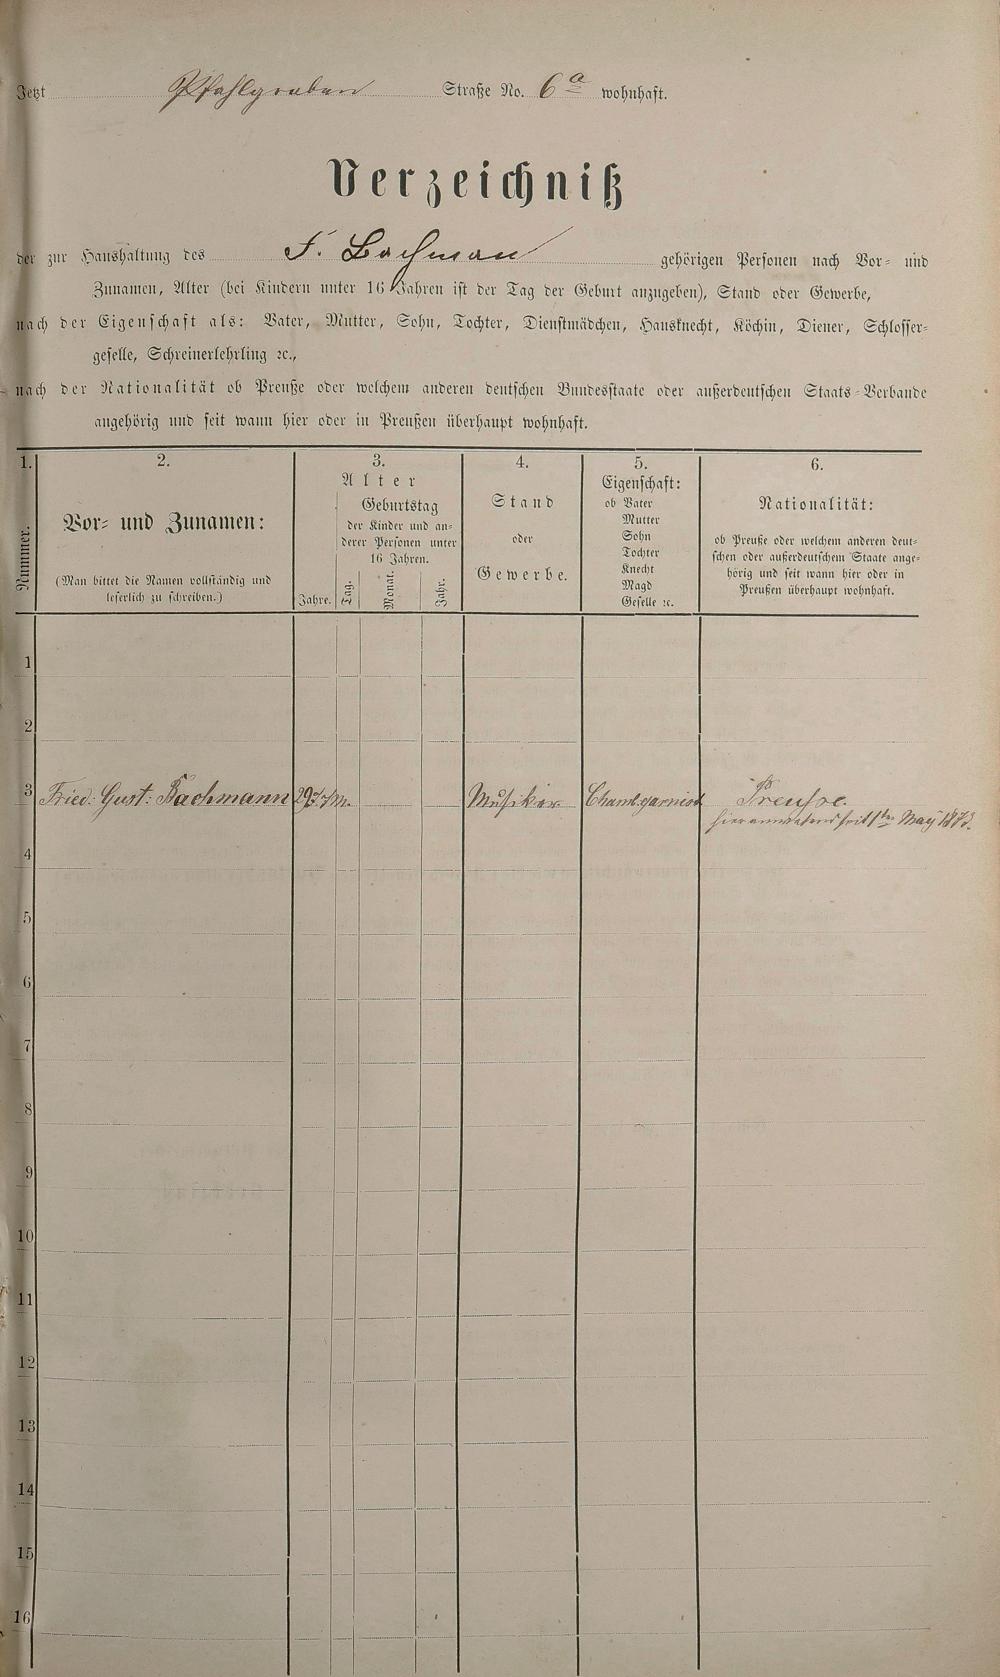 Jetzt Pfahlgraben Straße No. 6a wohnhaft.
Verzeichniß
der zur Haushaltung des F. Bachman gehörigen Personen nach Vor- und
Zunamen, Alter (bei Kindern unter 16 Jahren ist der Tag der Geburt anzugeben), Stand oder Gewerbe,
nach der Eigenschaft als: Vater, Mutter, Sohn, Tochter, Dienstmädchen, Hausknecht, Köchin, Diener, Schlosser-
geselle, Schreinerlehrling ꝛc.,
nach der Nationalität ob Preuße oder welchem anderen deutschen Bundesstaate oder außerdeutschen Staats-Verbande
angehörig und seit wann hier oder in Preußen überhaupt wohnhaft.
1.
Nummer.
2.
Vor- und Zunamen:
(Man bittet die Namen vollständig und
leserlich zu schreiben.)
3.
Alter
Geburtstag
der Kinder und an-
derer Personen unter
16 Jahren.
Jahre.
Tag.
Monat.
Jahr.
4.
Stand
oder
Gewerbe.
5.
Eigenschaft:
ob Vater
Mutter
Sohn
Tochter
Knecht
Magd
Geselle ꝛc.
6.
Nationalität:
ob Preuße oder welchem anderen deut-
schen oder außerdeutschem Staate ange-
hörig und seit wann hier oder in
Preußen überhaupt wohnhaft.
1
2
3 Fried: Gust: Bachmann Musiker Chambgarnist Preuße.
hier anwesend seit 1ten May 1873.
4
5
6
7
8
9
10
11
12
13
14
15
16